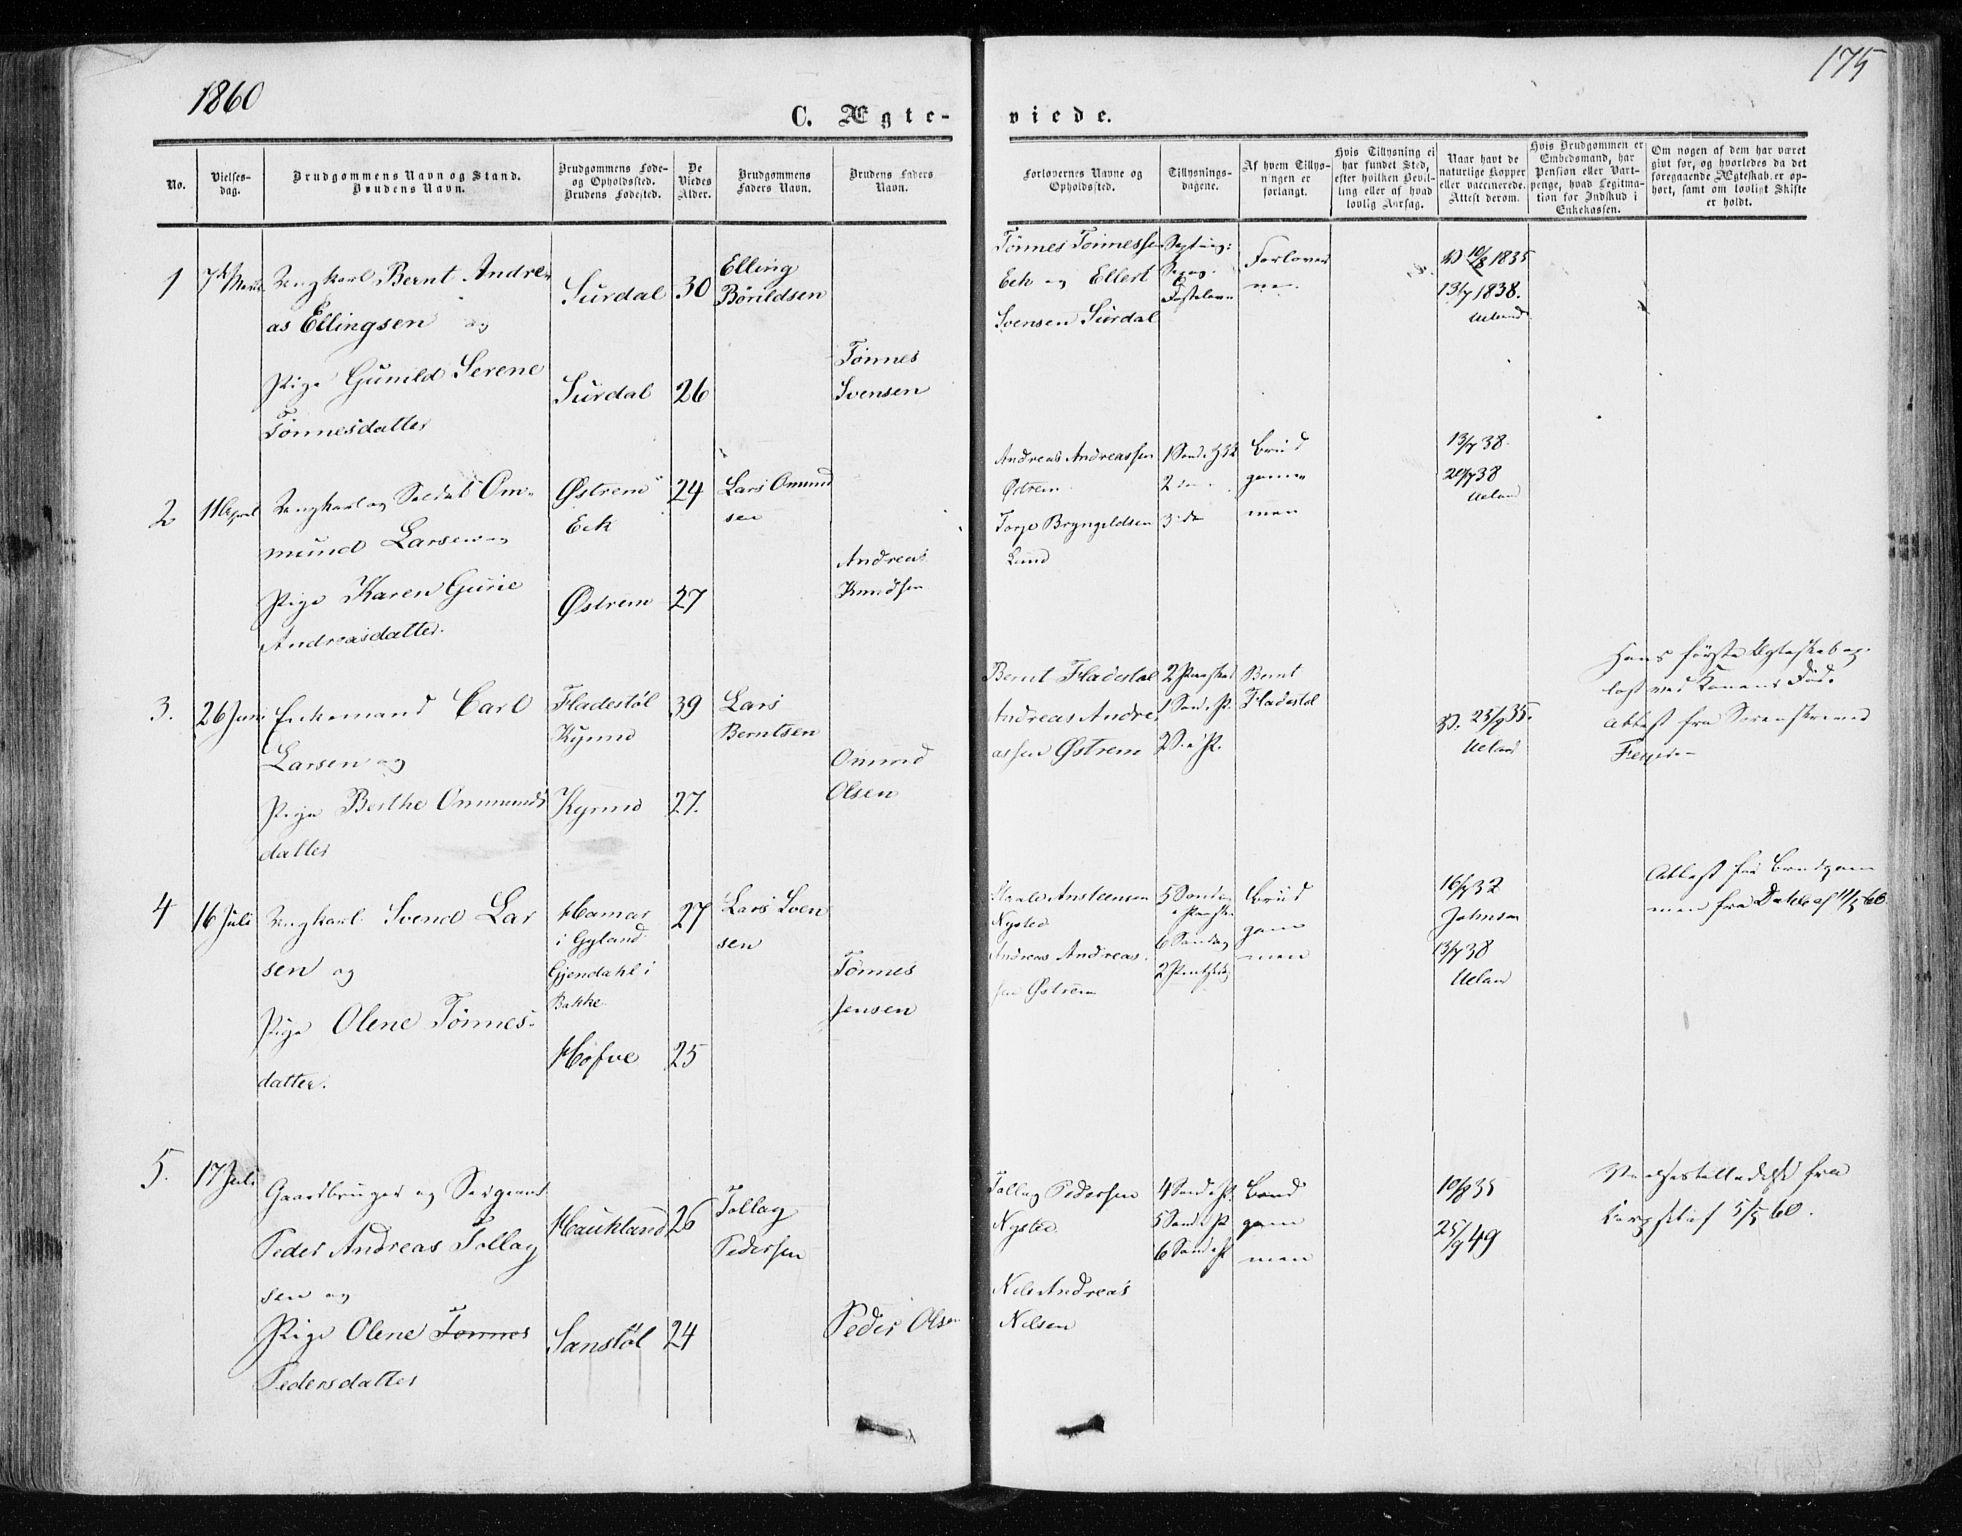 1860
175
C. Ægte-
viede.
No.
Vielses-
dag.
Brudgommens Navn og Stand.
Brudens Navn.
Brudgommens Føde-
og Opholdssted.
Brudens Fødested.
De
Viedes
Alder.
Brudgommens
Faders Navn.
Brudens Faders
Navn.
Forlovernes Navne og
Opholdssted.
Tillysnings-
dagene.
Af hvem Tillys-
ningen er
forlangt.
Hvis Tillysning ei
har fundet Sted,
efter hvilken Bevil-
ling eller af hvad
lovlig Aarsag.
Naar havt de
naturlige Kopper
eller vaccinerede.
Attest derom.
Hvis Brudgommen er
Embedsmand, har
Pension eller Vart-
penge, hvad Legitima-
tion for Indskud i
Enkekassen.
Om nogen af dem har været
givt før, og hvorledes da det
foregaaende Ægteskab er op-
hørt, samt om lovligt Skifte
er holdt.
1
Ungkarl Bernt Andre-
as Ellingsen og
Pige Gunild Serene
Tønnesdatter
Surdal
30
Elling
Børildsen
Surdal
26
Tønnes
Svensen
Tønnes Tønnessen
Eek og Ellert
Svensen Surdal
Forlover
ne
10/8 1835
13/7 1838.
Ueland
2
11 April
Ungkarl og Soldat Om-
mund Larsen og
Pige Karen Gurie
Andreasdatter.
Østrem
Eek
24
Lars Omund
sen
Østrem
27
Andreas
Knudsen
Andreas Andreassen
Østrem
Torje Bryngeldsen
Lund
Brud
gom
men
13/7 38.
20/7 38
Ueland
3.
26 Juni
Enkemand Carl
Larsen og
Pige Berthe Ommunds
datter
Fladestøl
Kyrmo
39
Lars
Berntsen
Kyrmo
27.
Omund
Olsen
Bernt Fladestøl
Andreas Andre-
assen Østrem
2 Paaskedag
1 Sond. e. P.
2 D. e. P.
Bernt
Fladestøl
25/9 35.
Ueland
Hans første Ægteskab op-
løst ved Konens Død.
Attest fra Sorenskriver
4
16 Juli
Ungkarl Svend Lar
sen og
Pige Olene Tønnes-
datter.
Hamar
i Gyland
Gjendahl i
Bakke
27
Lars Sven
sen
Høfve
25
Tønnes
Jensen
Nysted
Andreas Andreas-
sen Østrem
5 Søndag
6 Søndag
Brud
gom
men
16/7 32
Johnsen
13/7 38
Ueland
Attest for Brudgom
men fra Dahle af 11/5 60
5.
17 Juli
Gaardbruger og Sergeant
Peder Andreas Tollag
sen og
Pige Olene Tønnes
Pedersdatter
Haukland
26
Tollag
Pedersen
Sanstøl
24
Peder Olsen
Tollag Pedersen
Nysted
Nils Andreas
Nilsen
4 Sond. e. P.
5 Sond. e. P.
6 Sond. e. P.
Brud
gom
men
10/8 35
25/9 49
Vielsestilladelse fra
Corpschef 5/5 60.